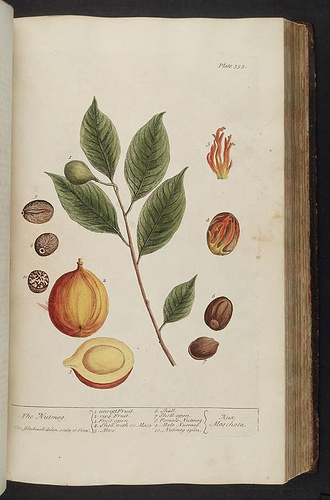 Plate 353.
The Nutmeg.
Eliz. Blackwell delin. sculp. et Pinx.
1. unripe Fruit.
2. ripe Fruit.
3. Fruit open.
4. Shell with its Mace.
5. Mace
6. Shell.
7. Shell open.
8. Female Nutmeg.
9. Male Nutmeg.
10. Nutmeg open.
Nux
Moschata.